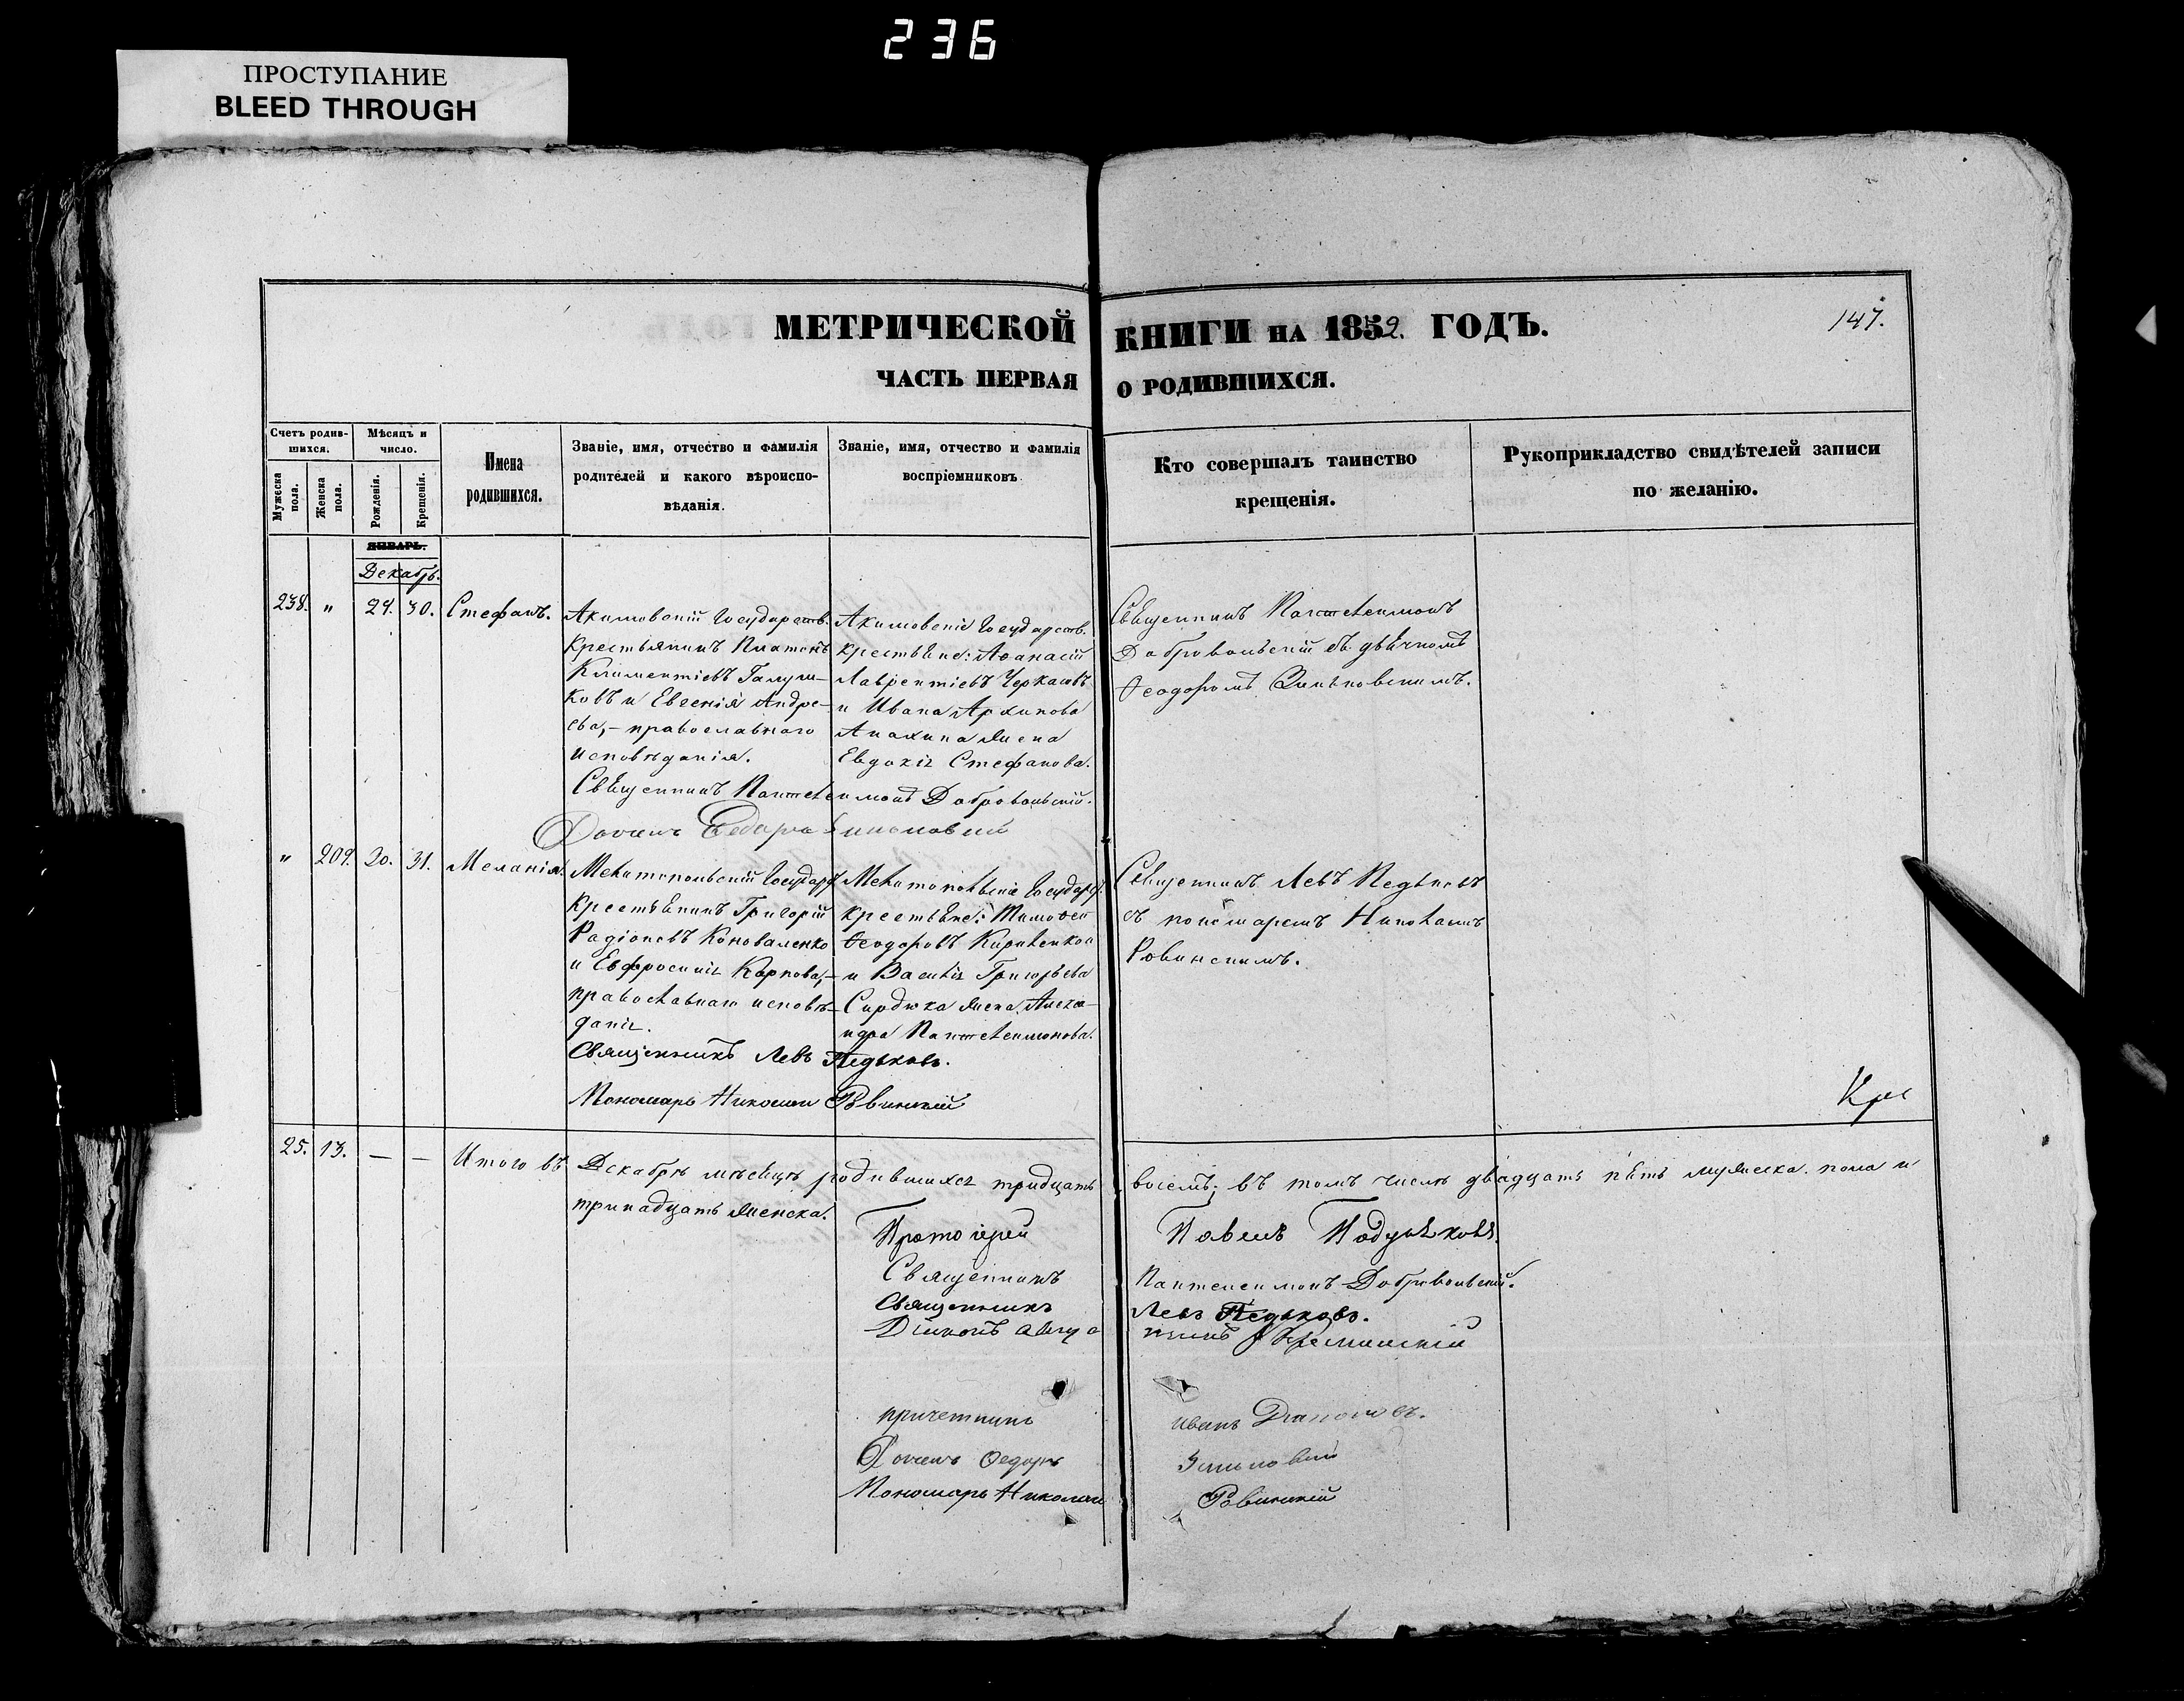 236
ПРОСТУПАНИЕ
BLEED THROUGH
МЕТРИЧЕСКОЙ КНИГИ НА 1859. ГОДЪ.
147.
ЧАСТЬ ПЕРВАЯ О РОДИВШИХСЯ.
Счетъ родив-
шихся.
Мужеска пола.
Женска пола.
Мѣсяцъ и
число.
Рожденія.
Крещенія.
Имена
родившихся.
Званіе, имя, отчество и фамилія
родителей и какого вѣроиспо-
вѣданія.
Званіе, имя, отчество и фамилія
воспріемниковъ
Кто совершалъ таинство
крещенія.
Рукоприкладство свидѣтелей записи
по желанію.
ЯНВАРЬ.
Декабрь.
238. " 24. 30. Стефанъ.
Акимовскій Государств.
крестьянинъ Платонъ
Климентіевъ Галуш-
ковъ и Евгенія Андре-
ева,- православнаго
исповѣданія.
Акимовскіе Государств.
крестьяне: Аѳанасій
Лаврентіевъ Черкасовъ
и Ивана Архипова
Анахина жена
Евдокія Стефанова.
Священникъ Пантелеимонъ
Добровольскій съ дьячкомъ
Ѳеодоромъ Зиньковскимъ.
Священникъ Пантелеимонъ Добровольскій.
" 209. 20. 31. Меланія.
Мелитопольскій Государ.
крестьянинъ Григорій
Радіоновъ Коноваленко
и Евфросинія Карпова,-
православнаго исповѣ-
данія.
Мелитопольскіе Государ.
крестьяне: Тимоѳей
Ѳеодоровъ Кириленко
и Василія Григорьева
Сирдюка жена Алекса-
ндра Пантелеимонова.
Священникъ Левъ Педьковъ
съ пономаремъ Николаемъ
Ровинскимъ.
Священникъ Левъ Педьковъ.
Пономарь Николай Ровинскій
25. 13. — — Итого въ Декабрѣ мѣсяцѣ родившихся тридцать восемь; въ томъ числѣ двадцать пять мужеска пола и
тринадцать женска.
Протоіерей Павелъ
Священникъ Пантелеимонъ Добровольскій.
Священникъ Левъ Педьковъ.
Діаконъ
причетникъ Иванъ
Ѳедоръ Зиньковскій
Пономарь Николай Ровинскій